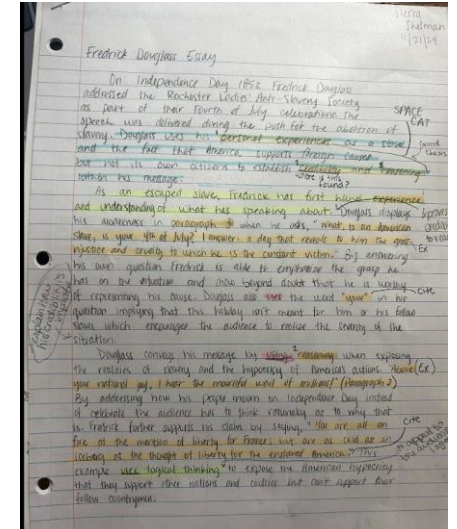 Sierra
Shelman
11/21/24
Fredrick Douglass Essay
On Independence Day 1852 Fredrick Douglass
addressed the Rochester Ladies Anti-Slavery Society
as part of their Fourth of July celebrations. The
speech was delivered during the push for the abolition of
slavery. Douglass uses his personal experiences as a slave
and the fact that America supports foreign causes
but not its own citizens to establish and reasoning
within his message.
SPACE
CAT
Good
thesis
found?
As an escaped slave, Fredrick has first hand experience
and understanding of what has speaking about. Douglass displays
his awareness in paragraph when he asks, "What, to an American
slave, is your 4th of July? I answer: a day that reveals to him the gross
injustice and cruelty to which he is the constant victim." By answering
his own question Fredrick is able to emphasize the grasp he
has on the situation and show beyond doubt that he is worthy
of representing his cause. Douglass also uses the word "your" in his
question implying that this holiday isn't meant for him or his fellow
slaves which encourages the audience to realize the severity of the
situation.
Ex
cite
explain how
his credibility is
Douglass conveys his message by using reasoning when exposing
the realities of slavery and the hypocrisy of America's actions. Above
your national joy, I hear the mournful wail of millions" (Paragraph 2)
By addressing how his people mourn on Independence Day instead
of celebrate the audience has to think rationally as to why that
is. Fredrick further supports his claim by saying, "You are all on
fire at the mention of liberty for France, but are as cold as an
iceberg at the thought of liberty for the enslaved America." This
example uses logical thinking to expose the American hypocrisy
that they support other nations and countries but can't support their
fellow countrymen.
(Ex)
cite